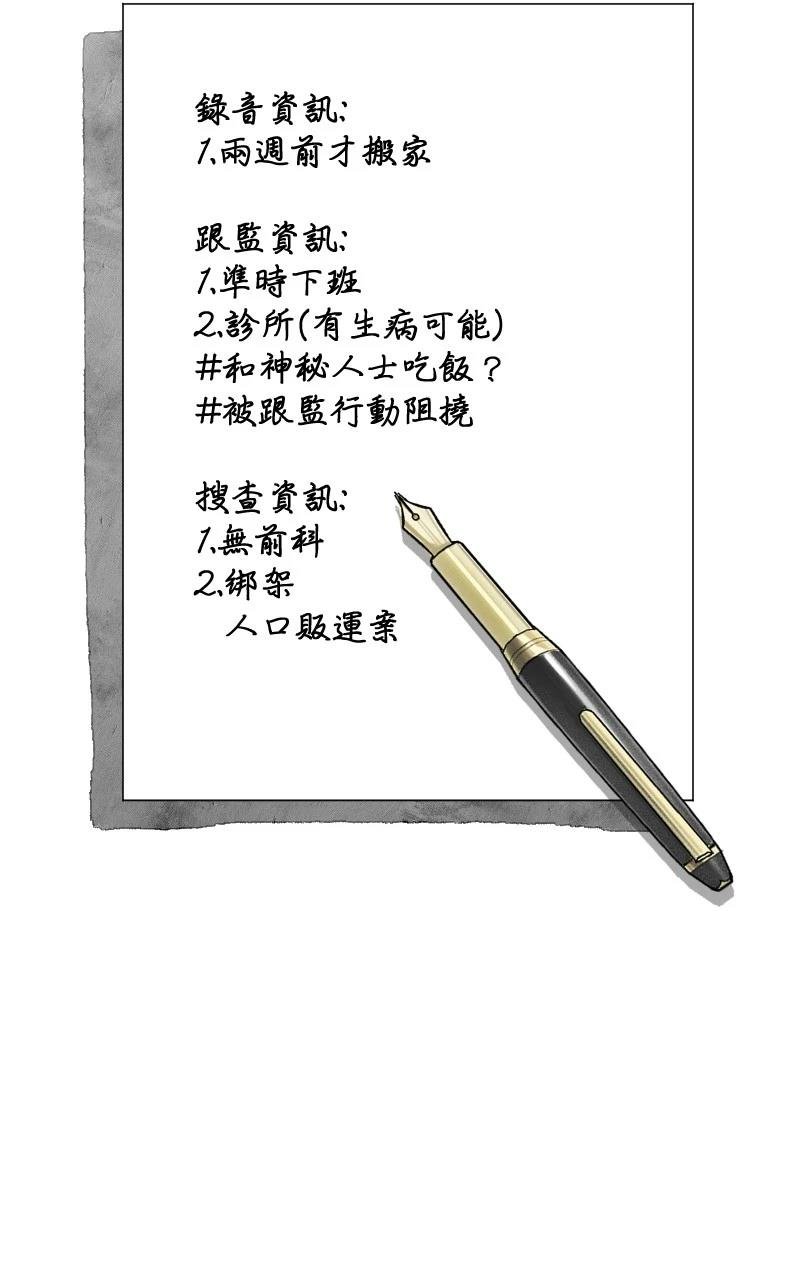 錄音資訊:
1.兩週前才搬家
跟監資訊:
1.準時下班
2.診所(有生病可能)
#和神秘人士吃飯?
#被跟監行動阻撓
搜查資訊:
1.無前科
2.綁架
人口販運案